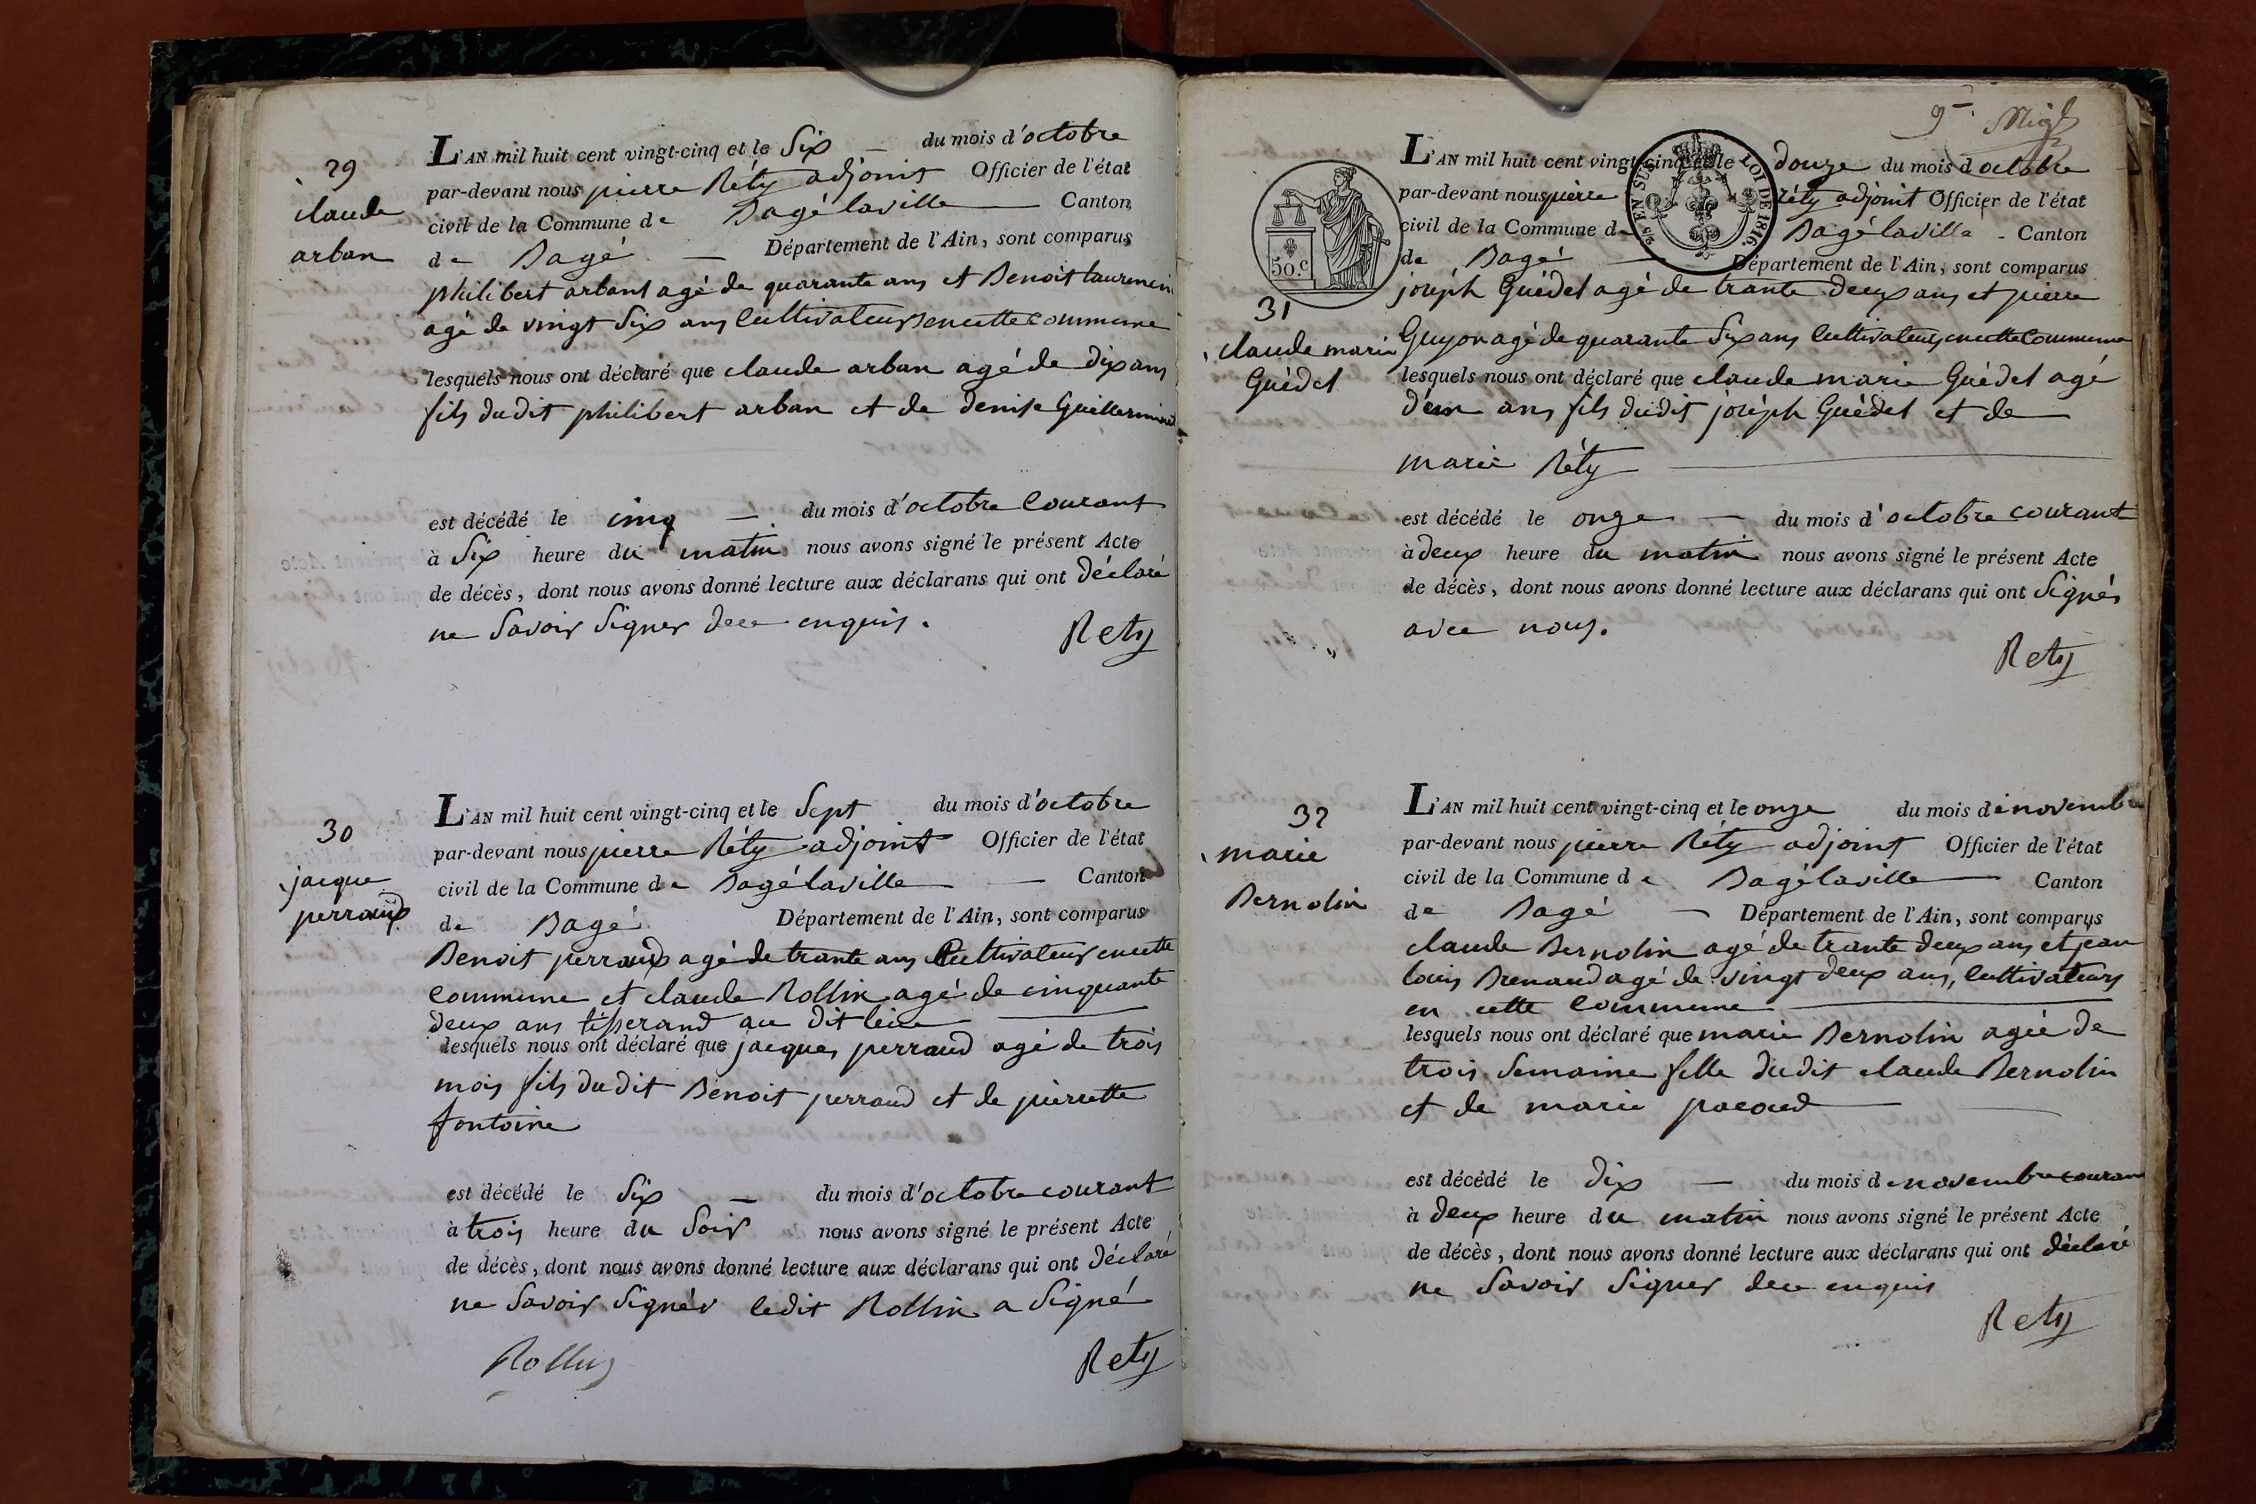 29
claude
arban
L'AN mil huit cent vingt-cinq et le Six du mois d'octobre
par-devant nous pierre Réty adjoint Officier de l'état
civil de la Commune de Bagélaville Canton
de Bagé Département de l'Ain, sont comparus
philibert arbant agé de quarante ans et Benoit laurencin
agé de vingt Six ans Cultivateurs en cette commune
lesquels nous ont déclaré que claude arban agé de dix ans
fils dudit philibert arban et de denise Guillerminet
est décédé le cinq du mois d'octobre Courant
à Six heure du matin nous avons signé le présent Acte
de décès, dont nous avons donné lecture aux déclarans qui ont déclaré
ne Savoir Signer de ce enquis.
Rety
30
jacque
perraud
L'AN mil huit cent vingt-cinq et le Sept du mois d'octobre
par-devant nous pierre Réty adjoint Officier de l'état
civil de la Commune de Bagélaville Canton
de Bagé Département de l'Ain, sont comparus
Benoit perraud agé de trante ans Cultivateur en cette
commune et claude Rollin agé de cinquante
deux ans tisserand au dit lieu
lesquels nous ont déclaré que jacques perraud agé de trois
mois fils dudit Benoit perraud et de pierrette
fontoine
est décédé le Six du mois d'octobre courant
à trois heure du Soir nous avons signé le présent Acte
de décès, dont nous avons donné lecture aux déclarans qui ont déclaré
ne Savoir Signér ledit Rollin a Signé
Rollin Rety
9e
EN SUS LOI DE 1816.
50.c
31
claude marie
Guédet
L'AN mil huit cent vingt-cinq et le douze du mois d octobre
par-devant nous pierre Réty adjoint Officier de l'état
civil de la Commune de Bagélaville Canton
de Bagé Département de l'Ain, sont comparus
joséph Guédet agé de trante deux ans et pierre
Guyon agé de quarante Six ans Cultivateurs en cette Commune
lesquels nous ont déclaré que claude marie Guédet agé
d'un ans fils dudit joséph Guédet et de
marie Réty
est décédé le onze du mois d'octobre courant
à deux heure du matin nous avons signé le présent Acte
de décès, dont nous avons donné lecture aux déclarans qui ont Signés
avec nous.
Rety
32
marie
Bernolin
L'AN mil huit cent vingt-cinq et le onze du mois de novembre
par-devant nous pierre Réty adjoint Officier de l'état
civil de la Commune de Bagélaville Canton
de Bagé Département de l'Ain, sont comparus
claude Bernolin agé de trante deux ans et jean
louis Brenaud agé de vingt deux ans, Cultivateurs
en cette Commune
lesquels nous ont déclaré que marie Bernolin agée de
trois Semaine fille dudit claude Bernolin
et de marie pacoud
est décédé le dix du mois de novembre courant
à deux heure du matin nous avons signé le présent Acte
de décès, dont nous avons donné lecture aux déclarans qui ont déclaré
ne Savoir Signer de ce enquis
Rety